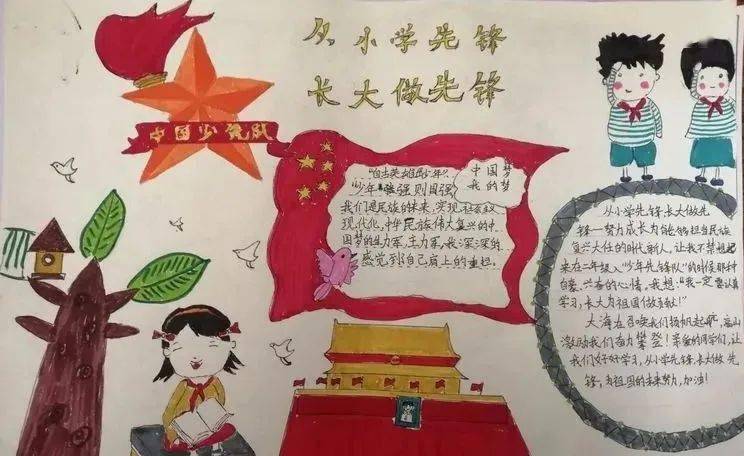 从小学先锋
长大做先锋
中国少先队
"自古英雄出少年".
"少年强则国强
我们是民族的未来,实现社会主义
现代化,中华民族伟大复兴的中
国梦的生力军,主力军,我深深的
感觉到自己肩上的重担。
中国梦
我的梦
从小学先锋长大做先
锋—努力成长为能够担当民族
复兴大任的时代新人,让我不禁想起
来在二年级入"少年先锋队"的时候那种
自豪、兴奋的心情。我想:"我一定要认真
学习,长大为祖国做贡献!"
大海在召唤我们扬帆起航,高山
激励我们奋力攀登!亲爱的同学们,让
我们好好学习,从小学先锋长大做先
锋,为祖国的未来努力,加油!